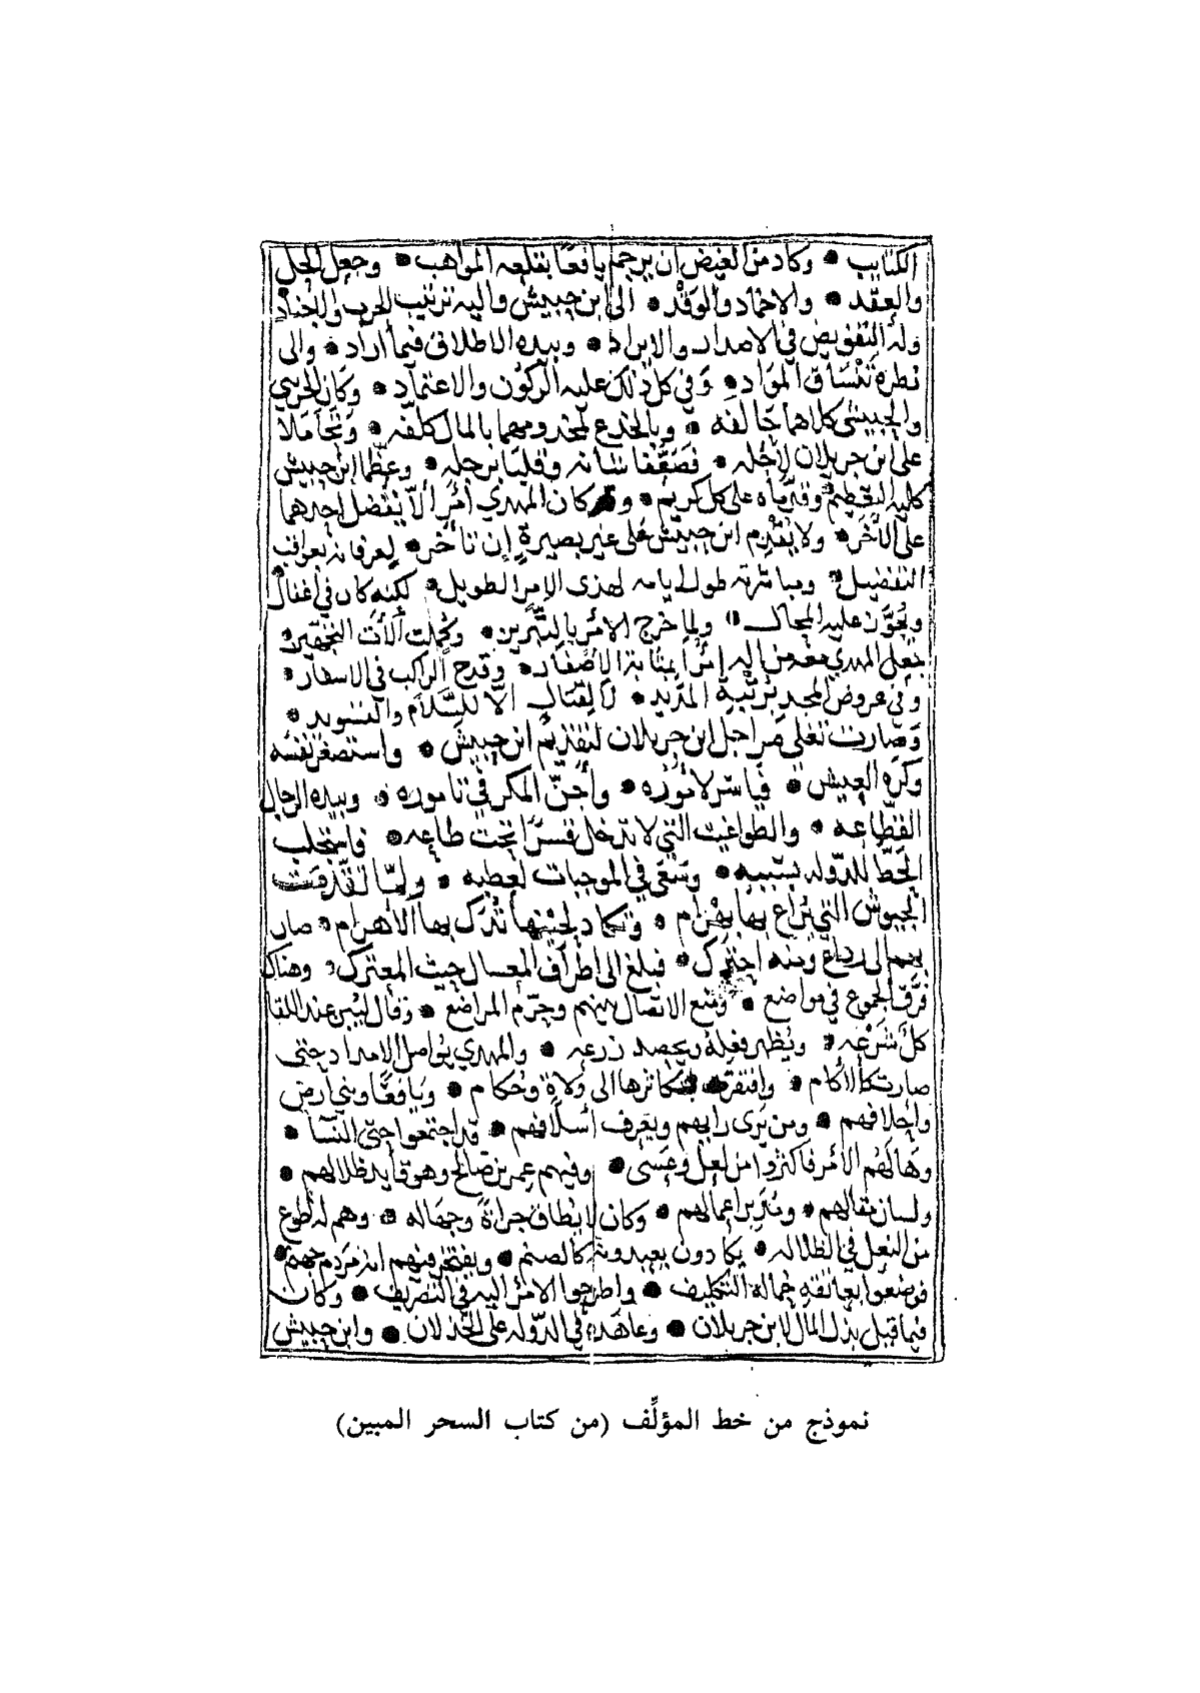 الكتايب • وكاد من الغيض ان يرجم يافعًا بقلعه المواهب • وجعل الحل
والعقد • والاخماد والوقد • الى ابن حبيش واليه ترتيب الحرب والجناد
وله التفويض في الاصدار والايراد • وبيده الاطلاق فيما أراد • والى
نظره تنساق المواد • وفي كل ذلك عليه الركون والاعتماد • وكان الحربي
والحبيشي كلاهما حالفه • وبالخدع لمخدومهما بالمال كلفه • وتحاملا
على ابن جربلان لاجله • فصغّفا شانه وقلبا برجله • وعظّما ابن حبيش
كليه التعظيم وقدّماه على كل كريم • وقد كان المهدي أمر ألاّ يفضل احدهما
على الآخر • ولا يقدم ابن حبيش على غير بصيرة إن تأخر • لعرفانه بعواقب
التفضيل • ومباشرته طول ايامه لهذى الامر الطويل • لكنه كان في اغفال
ولما خرج الامر بالتبريز • وكملت آلات التجهيز
جعل المهدي معه من اليه امرًا بمثابة الإصفار • وقدح الراكب في الاسفار •
وفي عروض المجد برتبة المزيد • لا لقتال الا للسلام والتسويد •
وصارت تغلى مراجل ابن جربلان لتقديم ابن حبيش • واستصغر نفسه
وكره العيش • فياسر لاموره • وأجنّ المكر في تاموره • وبيده الرجال
القطاعه • والطواغيت التي لا تدخل قسرًا تحت طاعه • فاستجلب
الحَطّ للدوله بسببه • وسعى في الموجبات لعطبه • ولمّا تقدمت
الجيوش التي يراع بها بهرام • وتكاد لجنبها تترك بها الاهرام • صار
بهم الى رداع ومنه احترك • فبلغ الى اطراف المعسال حيث المعترك • وهناك
فرّق الجموع في مواضع • ومنع الاتصال بينهم وحرّم المراضع • وقال ليبر عند اللقا
كلّ شرعه • ويظهر فعله ويحصد زرعه • والمهدي يواصل الامداد حتى
صارت كالآكام • وافتقرت لتكاثرها الى ولاة وحكام • ويافعًا وبني ارض
واحلافهم • ومن يرى رايهم ويعرف أسلافهم • قد اجتمعوا حتى النسآ •
وهالهم الامر فاكثروا من لعل وعسى • وفيهم عمر بن صالح وهو قايد ظلالهم •
ولسان مقالهم • ومدبر اعمالهم • وكان لا يطاق جراة وجهاله • وهم له أطوع
من النعل في الظلاله • يكادون يعبدونه كالصنم • ويفتخر فيهم انه مردم جهنم •
فوضعوا بعاتقه حمالة التكليف • واطرحوا الامر اليه في التصريف • وكان
فيما قبل بذل المال لابن جربلان • وعاهده في الدوله على الخذلان • وابن حبيش
نموذج من خط المؤلِّف (من كتاب السحر المبين)